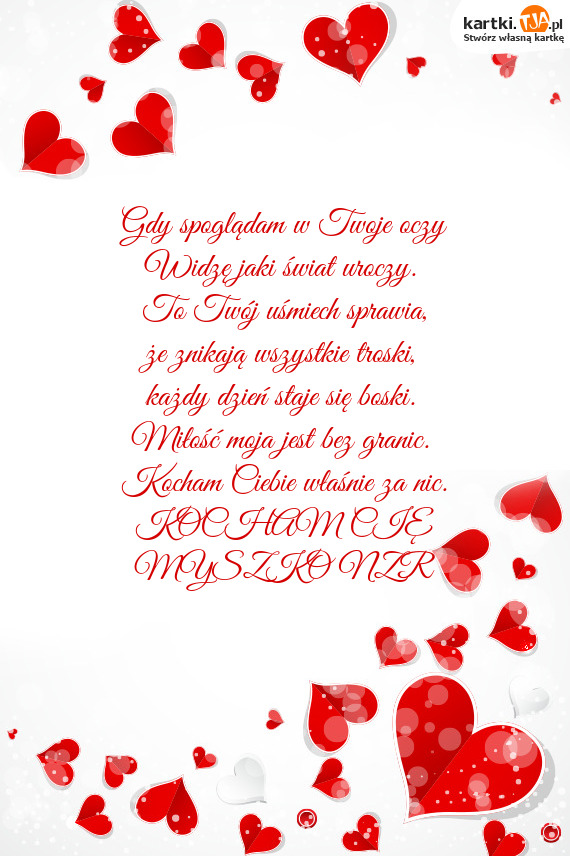 kartki.TJA.pl
Stwórz własną kartkę
Gdy spoglądam w Twoje oczy
Widzę jaki świat uroczy.
To Twój uśmiech sprawia,
że znikają wszystkie troski,
każdy dzień staje się boski.
Miłość moja jest bez granic.
Kocham Ciebie właśnie za nic.
KOCHAM CIĘ
MYSZKO NZR